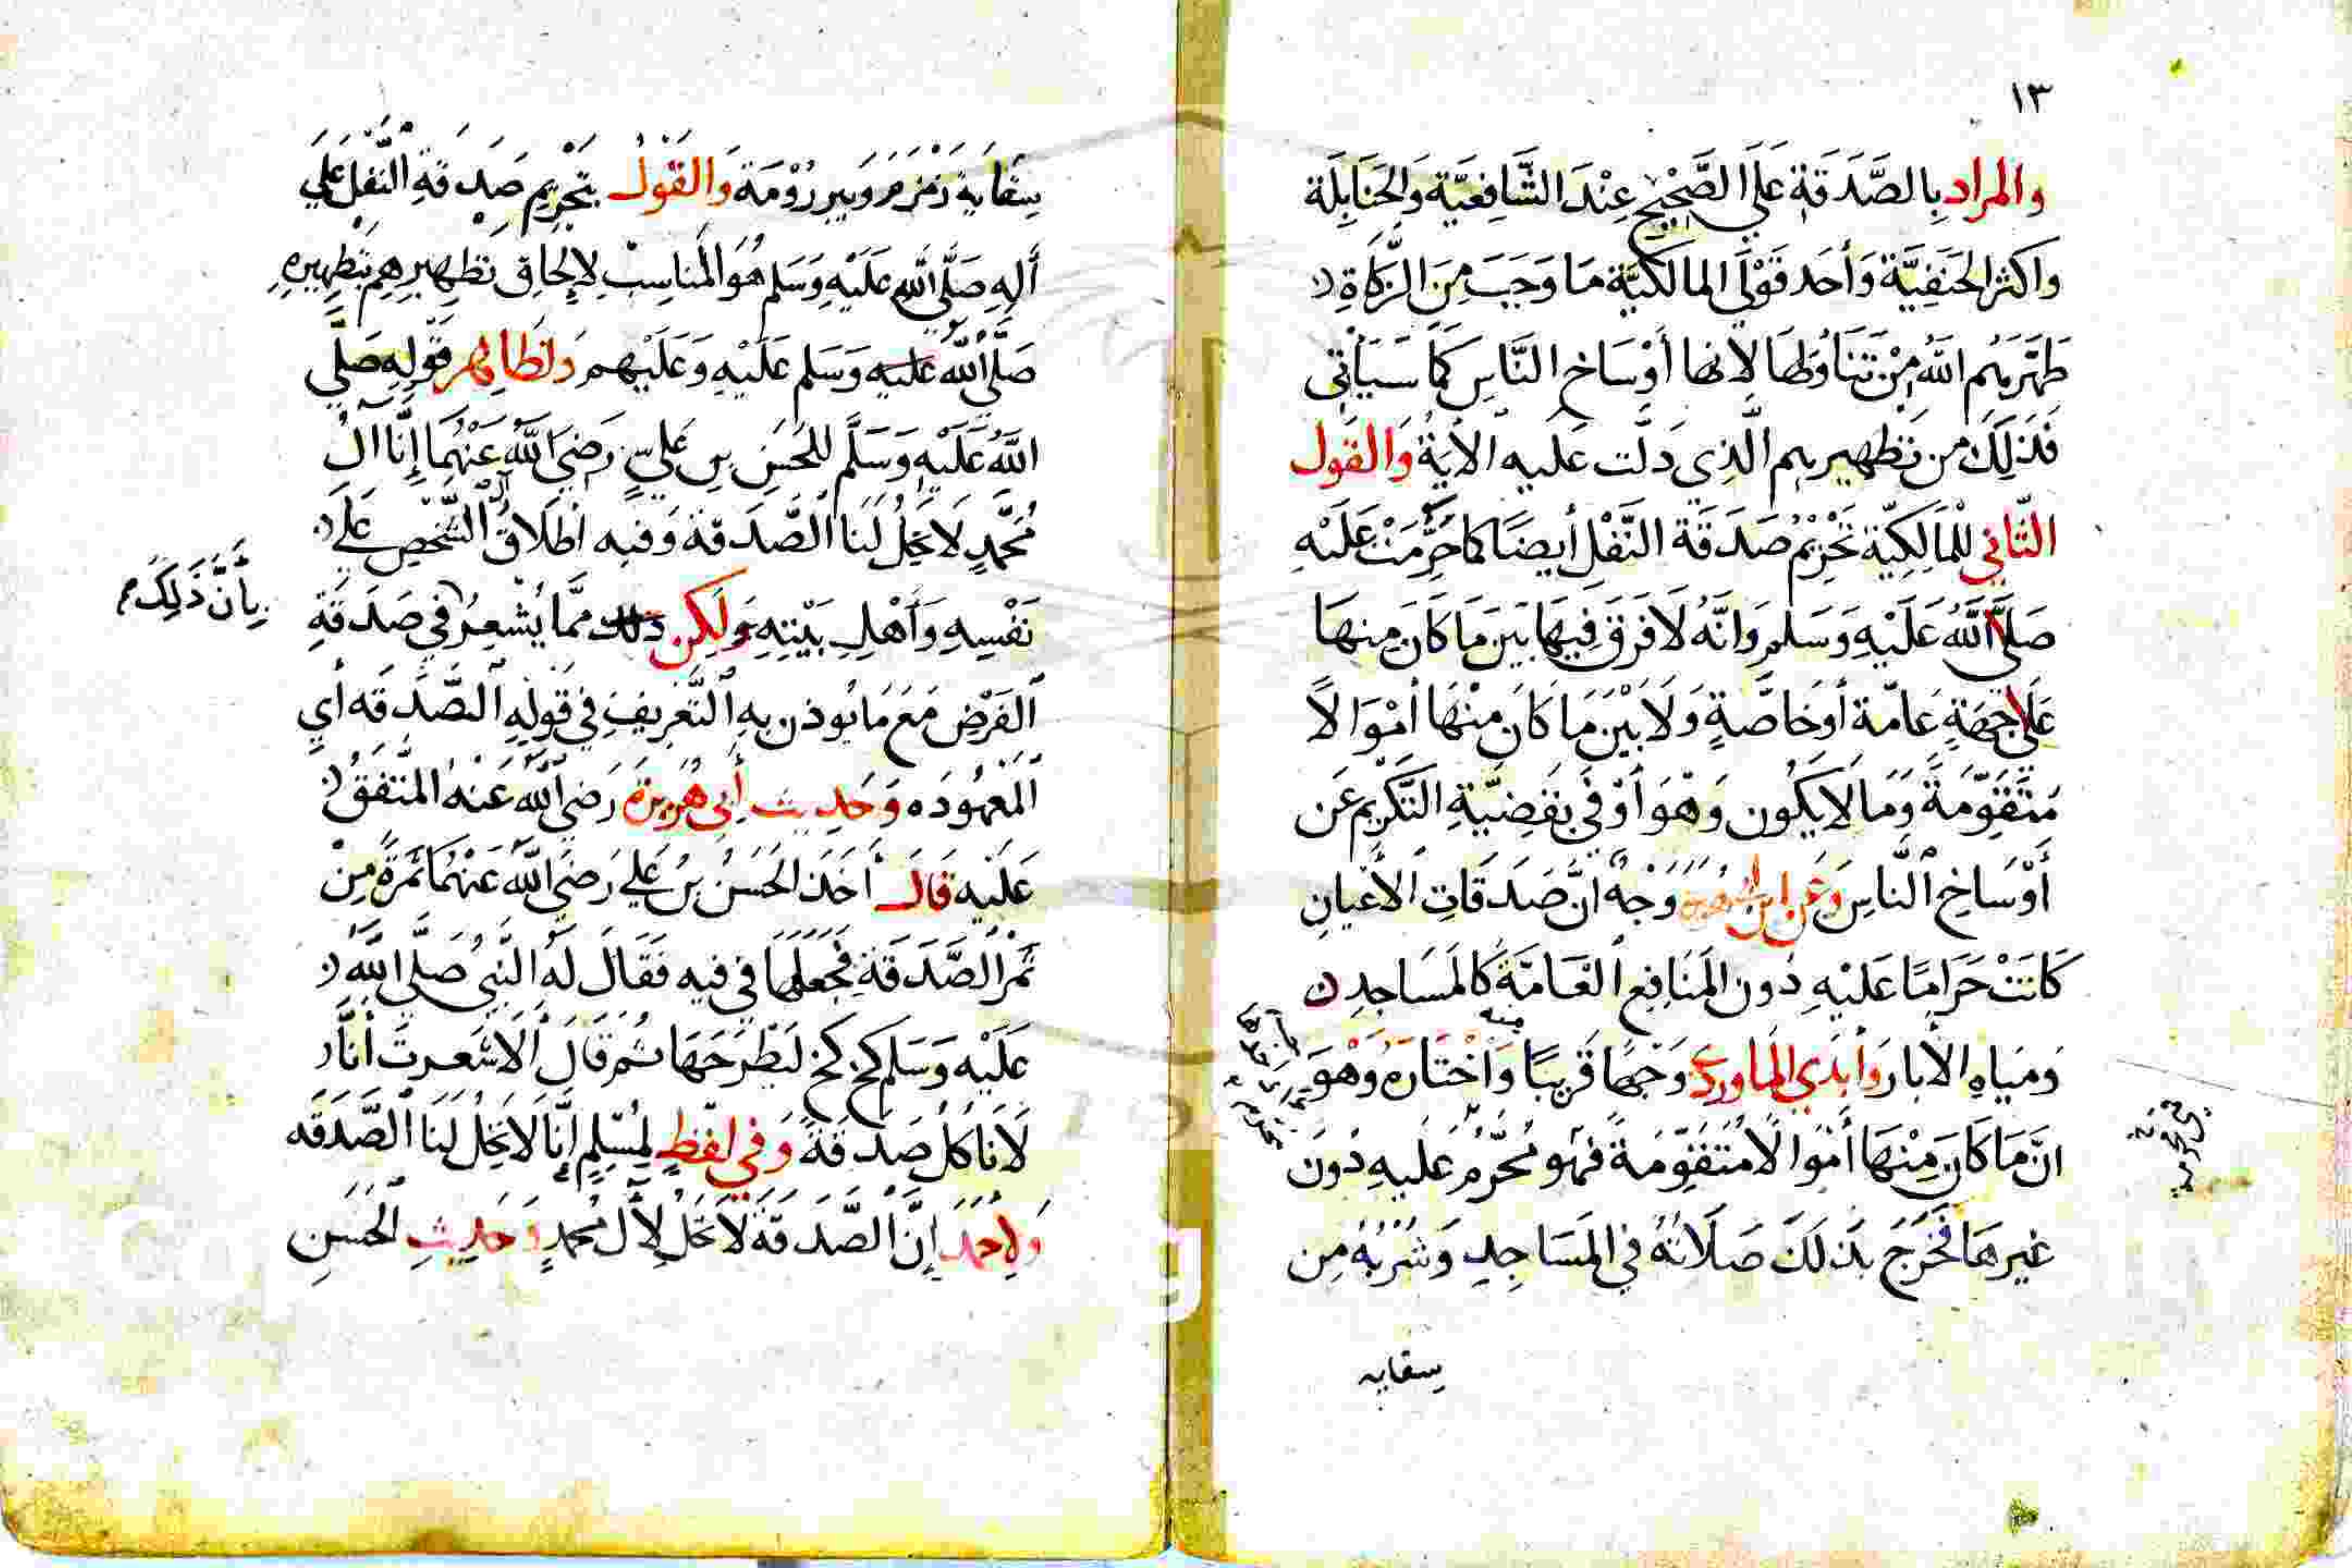 ١٣
والمراد بالصَّدَقَةِ عَلَى الصَّحِيْحِ عِنْدَ الشَّافِعَيَّة وَالحَنَابِلَة
واكثر الحَنَفِيَّة وَأحَد قَوْلَي المالكيَّة مَا وَجَبَ مِنَ الزَّكَاةِ
طَهَّرَهُم اللَّهُ مِنْ تَنَاوُلِهَا لأنها أَوْسَاخ النَّاسِ كَمَا سَيَأْتِي
فَذَلِكَ من تطهيرهم الَّذِي دَلَّت عَليه الآيَةُ وَالقَول
الثَّانِي لْلمَالِكِيَّة تَحْرِيْمُ صَدَقَة النَّفْلِ أيضًا كما حَرُمَتْ عَلَيْهِ
صَلَّى اللَّهُ عَلَيْهِ وَسَلم وَانَّهُ لَا فَرَقَ فِيهَا بَيْنَ مَا كَانَ مِنهَا
عَلَى جِهَةٍ عَامَّة أَوخَاصَّةٍ وَلَا بَيْنَ مَا كَانَ مِنْهَا أمْوَالاً
مُتَقَوِّمَةً وَمَا لَا يَكُون وَهْوَ أوْفَى بقَضِيَّةِ التَّكْرِيمِ عَن
أَوْسَاخِ النَّاسِ وَعَن ابن وَجْهٌ انَّ صَدَقَاتِ الأَعْيَانِ
كَانَتْ حَرَامًا عَلَيْهِ دُون المَنَافِعِ العَامَّةِ كَالمَسَاجِدِ
وَمَيَاهِ الآبار وَأبْدَي المَاورديّ وَجْهًا قَرِيبًا مِنه وَاخْتَارَهُ وَهْوَ
انَّ مَا كَانَ مِنْهَا أَمْوَالاً مُتَقَوِّمَةً فهو مُحَّرَمٌ عَليهِ دُونَ
غيرهَا فَخَرَجَ بذلكَ صَلَاتُهُ في المَسَاجِدِ وَشُرْبُهُ مِن
سقايه
سِقَايَةِ زَمْزَمَ وَبير رُوْمَة وَالقَوْلُ بتَحْرِيمِ صَدَقَةِ النَّفْلِ عَلَى
ألِهِ صَلَّى اللَّهِ عَلَيْهِ وَسَلم هُوَ المُنَاسِبْ لإلحَاقِ تَطهيرِهِم بتَطهِيرِهِ
صَلَّى اللَّهُ عَليهِ وَسَلم عَلَيْهِ وَعَلَيْهِم وَلظَاهِر قَوْلِهِ صَلَّى
اللَّهُ عَلَيْهِ وَسَلَّم لِلحَسَنِ بن عَليٍّ رَضِيَ اللَّهُ عَنْهُمَا إنَّا آلُ
مُحَمَّدٍ لَا تَحِلُ لَنَا الصَّدَقَة وَفيه اطْلَاقُ الشَّخْصِ عَلَى
نَفْسِهِ وَأَهْلِ بَيْتِهِ وَلَكِن ذلك ممَّا يُشْعِرُ في صَدَقَةِ
بِأنَّ ذَلِكَ
الفَرْضِ مَعَ مَا يُوذن بهِ التَّعْرِيفِ في قَوْلِهِ الصَّدَقَه أي
المَعْهُودَه وَحَدِيث أَبِي هُرَيرَة رَضِيَ اللَّهُ عَنْهُ المُتَّفَقُ
عَلَيْهِ قَالَ أَخَذَ الحَسَنُ بنُ عَلي رَضِيَ اللَّهُ عَنْهُمَا تَمْرَةً مِنْ
تَمْر الصَّدَقَةِ فجَعلهَا في فيهِ فَقَالَ لَهُ النَّبِي صَلَّى اللَّهُ
عَلَيْهِ وَسَلم كخ كَخ لَيَطْرَحَهَا ثُم قَالَ ألَا شَعرتَ أنَّا
لَا نَاكُل صَدَقَةً وَفي لَفْظٍ لمُسْلِمٍ إنَّا لَا تَحِلُ لنَا الصَّدَقَه
وَلأَحْمَدَ إِنَّ الصَّدَقَةَ لَا تَحلُ لأَلِ مُحَمَّدٍ وَحَدِيثِ الحَسَنِ